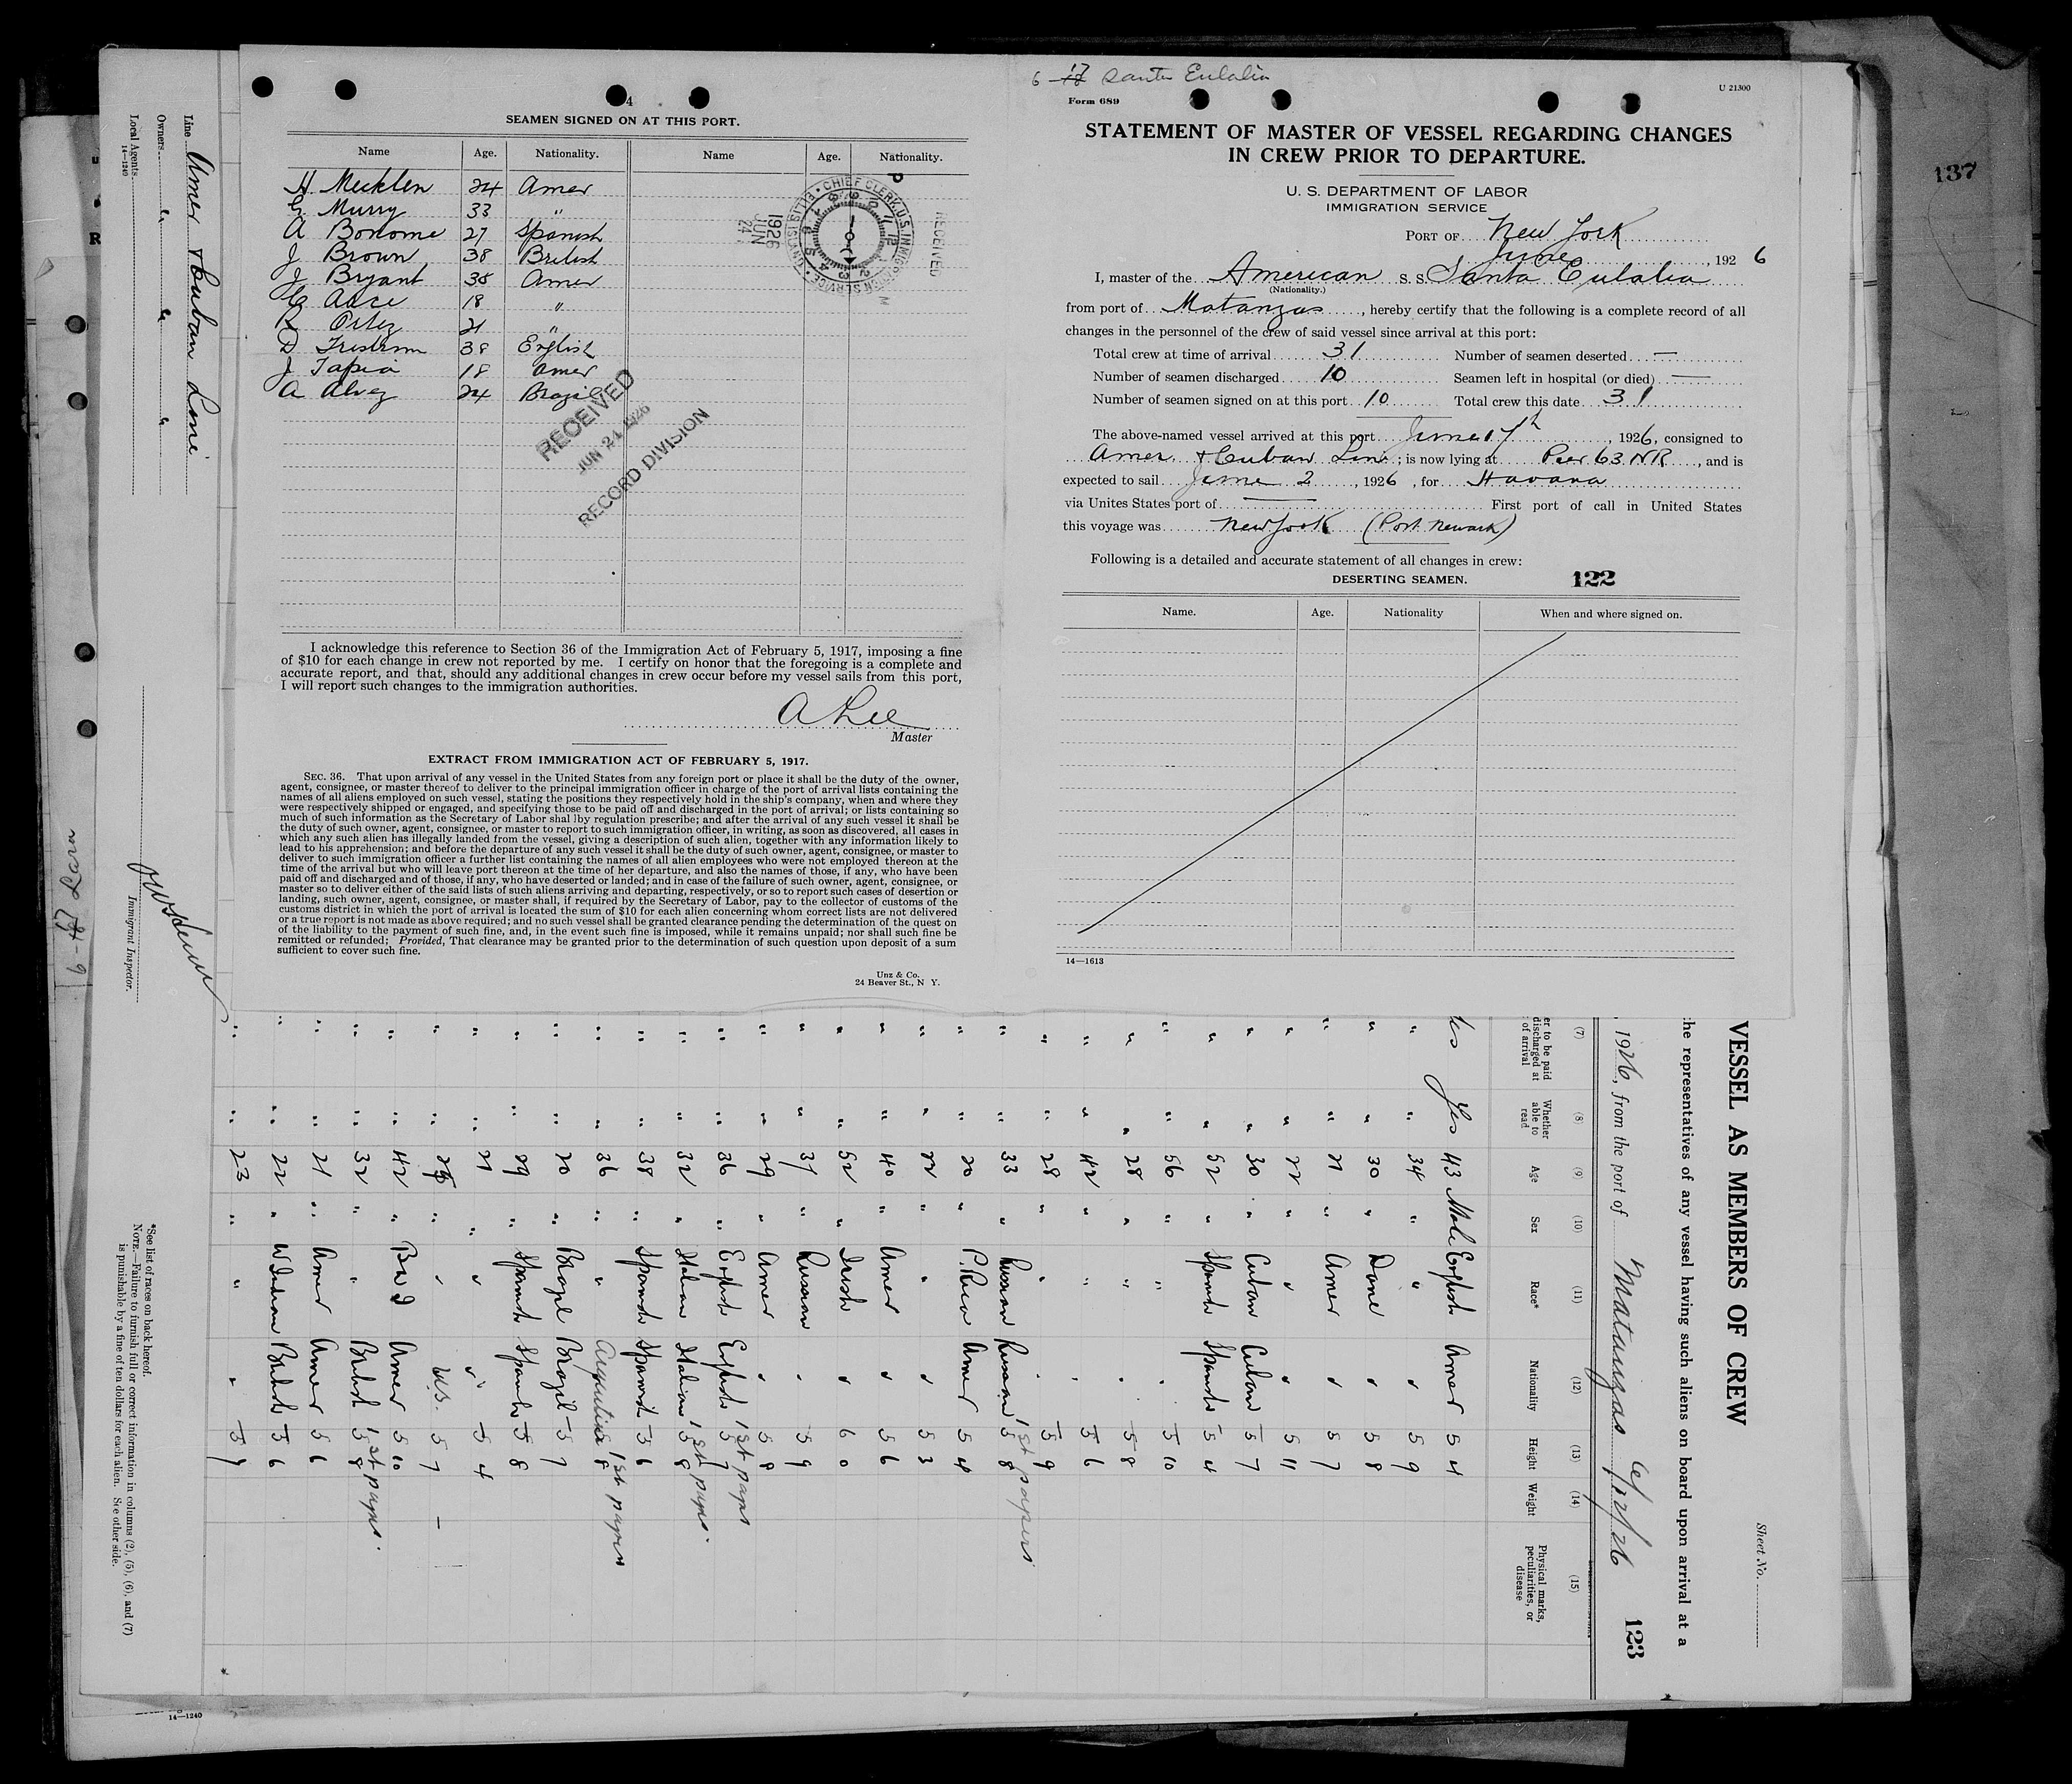 6-17 Santa Eulalia
4
SEAMEN SIGNED ON AT THIS PORT.
Name Age. Nationality. Name Age. Nationality.
H. Mecklen 24 Amer
G. Murry 33 "
A Bonome 27 Spanish
J Brown 38 British
J Bryant 35 Amer
18 "
R Ortez 21 "
D Tristram 38 English
J Tapia 18 Amer
A Alvez 24 Brazil
CHIEF CLERK, U.S. IMMIGRATION SERVICE
ELLIS ISLAND
RECEIVED
1926
JUN
24
RECEIVED
JUN 24 1926
RECORD DIVISION
I acknowledge this reference to Section 36 of the Immigration Act of February 5, 1917, imposing a fine
of $10 for each change in crew not reported by me. I certify on honor that the foregoing is a complete and
accurate report, and that, should any additional changes in crew occur before my vessel sails from this port,
I will report such changes to the immigration authorities.
A Lee
Master
EXTRACT FROM IMMIGRATION ACT OF FEBRUARY 5, 1917.
SEC. 36. That upon arrival of any vessel in the United States from any foreign port or place it shall be the duty of the owner,
agent, consignee, or master thereof to deliver to the principal immigration officer in charge of the port of arrival lists containing the
names of all aliens employed on such vessel, stating the positions they respectively hold in the ship's company, when and where they
were respectively shipped or engaged, and specifying those to be paid off and discharged in the port of arrival; or lists containing so
much of such information as the Secretary of Labor shal lby regulation prescribe; and after the arrival of any such vessel it shall be
the duty of such owner, agent, consignee, or master to report to such immigration officer, in writing, as soon as discovered, all cases in
which any such alien has illegally landed from the vessel, giving a description of such alien, together with any information likely to
lead to his apprehension; and before the departure of any such vessel it shall be the duty of such owner, agent, consignee, or master to
deliver to such immigration officer a further list containing the names of all alien employees who were not employed thereon at the
time of the arrival but who will leave port thereon at the time of her departure, and also the names of those, if any, who have been
paid off and discharged and of those, if any, who have deserted or landed; and in case of the failure of such owner, agent, consignee, or
master so to deliver either of the said lists of such aliens arriving and departing, respectively, or so to report such cases of desertion or
landing, such owner, agent, consignee, or master shall, if required by the Secretary of Labor, pay to the collector of customs of the
customs district in which the port of arrival is located the sum of $10 for each alien concerning whom correct lists are not delivered
or a true report is not made as above required; and no such vessel shall be granted clearance pending the determination of the quest on
of the liability to the payment of such fine, and, in the event such fine is imposed, while it remains unpaid; nor shall such fine be
remitted or refunded; Provided, That clearance may be granted prior to the determination of such question upon deposit of a sum
sufficient to cover such fine.
Unz & Co.
24 Beaver St., N Y.
Form 689
U 21300
STATEMENT OF MASTER OF VESSEL REGARDING CHANGES
IN CREW PRIOR TO DEPARTURE.
U. S. DEPARTMENT OF LABOR
IMMIGRATION SERVICE
PORT OF New York
June, 1926
I, master of the American S. S. Santa Eulalia
(Nationality.)
from port of Matanzas, hereby certify that the following is a complete record of all
changes in the personnel of the crew of said vessel since arrival at this port:
Total crew at time of arrival 31 Number of seamen deserted —
Number of seamen discharged 10 Seamen left in hospital (or died) —
Number of seamen signed on at this port 10 Total crew this date 31
The above-named vessel arrived at this port June 17th, 1926, consigned to
Amer. & Cuban Line; is now lying at Pier 63 NR, and is
expected to sail June 2, 1926, for Havana
via Unites States port of — First port of call in United States
this voyage was New York (Port Newark)
Following is a detailed and accurate statement of all changes in crew:
DESERTING SEAMEN. 122
Name. Age. Nationality When and where signed on.
14—1613
137
Line Amer & Cuban Line
Owners " " "
Local Agents
14—1240
Immigrant Inspector.
*See list of races on back hereof.
NOTE.—Failure to furnish full or correct information in columns (2), (5), (6), and (7)
is punishable by a fine of ten dollars for each alien. See other side.
14—1240
Sheet No.
VESSEL AS MEMBERS OF CREW
he representatives of any vessel having such aliens on board upon arrival at a
, 1926, from the port of Matanzas 6/12/26 123
(7) (8) (9) (10) (11) (12) (13) (14) (15)
er to be paid discharged at of arrival Whether able to read Age Sex Race* Nationality Height Weight Physical marks, peculiarities, or disease
Yes Yes 43 Male English Amer 5 4
" " 34 " " " 5 9
" " 30 " Dane " 5 8
" " 21 " Amer " 5 7
" " 22 " " " 5 11
" " 30 " Cuban Cuban 5 7
" " 52 " Spanish Spanish 5 4
" " 56 " " " 5 10
" " 28 " " " 5 8
" " 42 " " " 5 6
" " 28 " " " 5 9
" " 33 " Russian Russian 5 8 1st papers
" " 20 " P. Rico Amer 5 4
" " 22 " " " 5 3
" " 40 " Amer " 5 6
" " 52 " Irish " 6 0
" " 37 " Russian " 5 9
" " 29 " Amer " 5 8
" " 36 " English English 5 7 1st papers
" " 32 " Italian Italian 5 8 1st papers
" " 38 " Spanish Spanish 5 6
" " 36 " " Argentine 5 8 1st papers
" " 20 " Brazil Brazil 5 7
" " 29 " Spanish Spanish 5 8
" " 21 " " " 5 4
" " " " U.S. 5 7 —
" " 42 " Amer 5 10
" " 32 " " British 5 8 1st papers
" " 21 " Amer Amer 5 6
" " 22 " W Indian British 5 6
" " 23 " " " 5 9